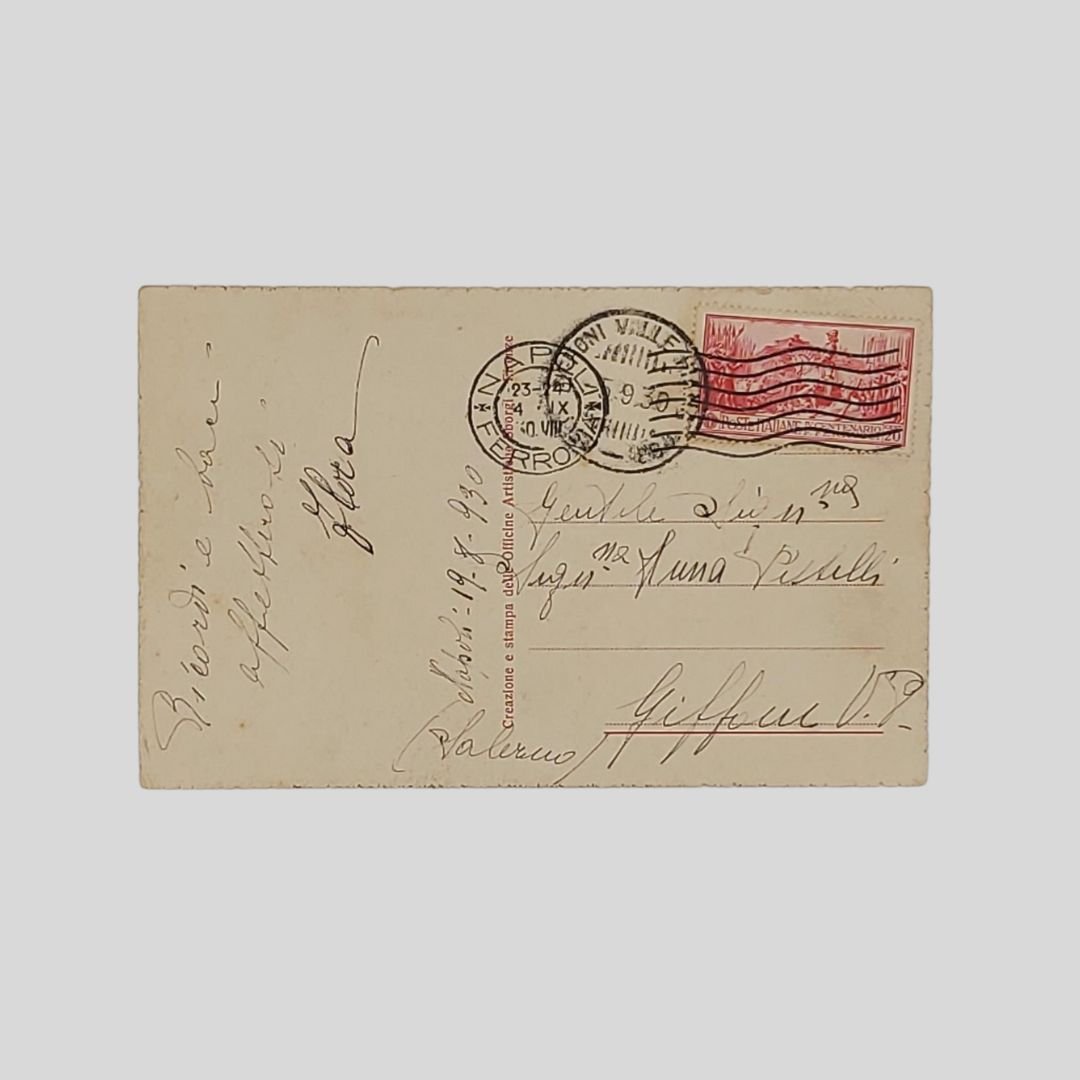 Ricordi e baci
affettuosi
Flora
Napoli - 19-8-930
Creazione e stampa delle Officine Artistiche
NAPOLI
FERROVIA
23-24
4 IX
30.VIII
GIFFONI VALLE
9.30
POSTE ITALIANE IV CENTENARIO
FERRUCCI
20
Gentile Sign.na
Sign.na Anna Pistelli
Giffoni V.P.
(Salerno)